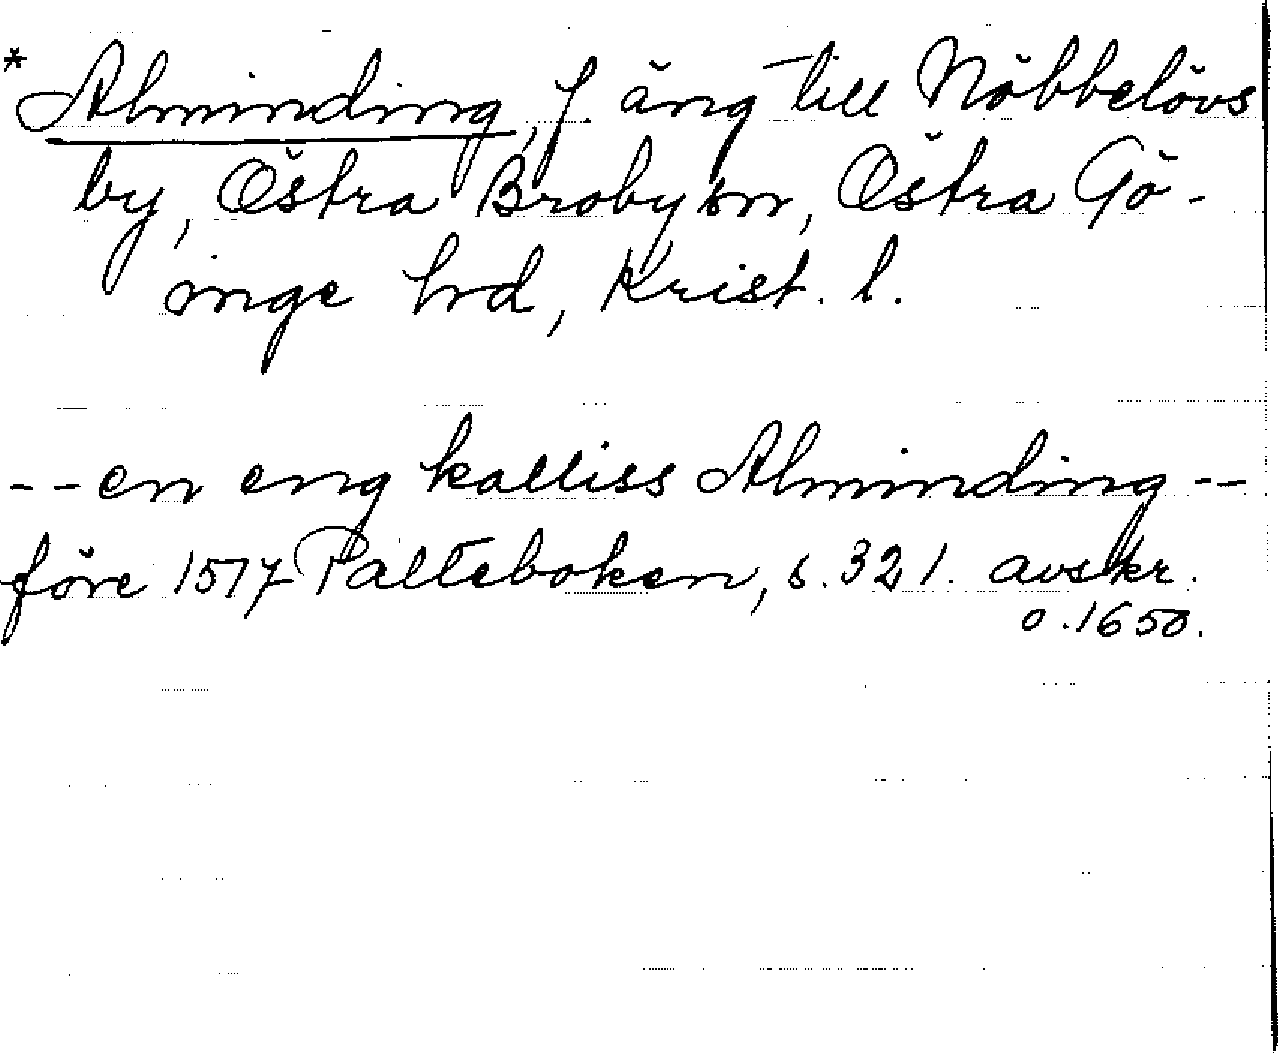 * Alminding, f äng till Nöbbelövs
by, Östra Broby sn, Östra Gö-
inge hd, Krist. l.
-- en eng kalliss Alminding --
före 1517 Palteboken, s. 321. avskr.
o. 1650.